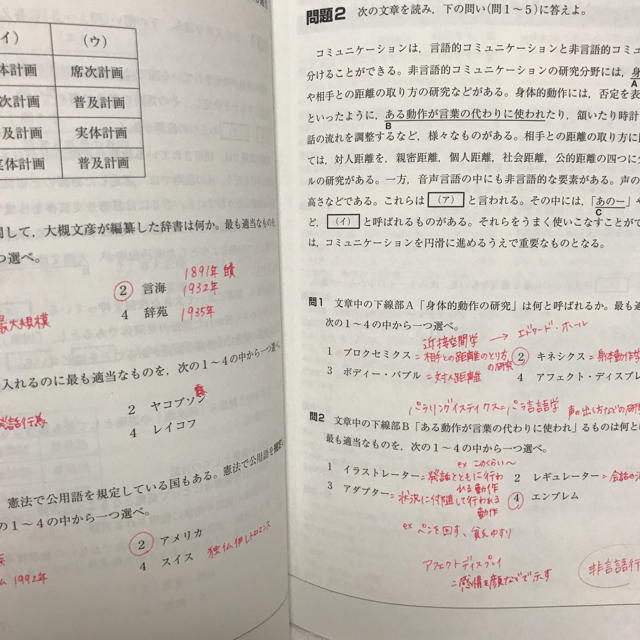 イ）
（ウ）
体計画
席次計画
次計画
普及計画
及計画
実体計画
実体計画
普及計画
関して，大槻文彦が編纂した辞書は何か。最も適当なものを
つ選べ。
1891年
2 言海 1932年
4 辞苑 1935年
最大規模
入れるのに最も適当なものを，次の1～4の中から一つ選べ
発話行為
2 ヤコブソン
4 レイコフ
憲法で公用語を規定している国もある。憲法で公用語を規定
の1～4の中から一つ選べ。
2 アメリカ
4 スイス 独仏伊レトロマンス
1992年
問題2 次の文章を読み，下の問い（問1～5）に答えよ。
コミュニケーションは，言語的コミュニケーションと非言語的コミュニケ
分けることができる。非言語的コミュニケーションの研究分野には，身
A
や相手との距離の取り方の研究などがある。身体的動作には，否定を表
といったように，ある動作が言葉の代わりに使われたり，頷いたり時計
B
話の流れを調整するなど，様々なものがある。相手との距離の取り方に
ては，対人距離を，親密距離，個人距離，社会距離，公的距離の四つに
ルの研究がある。一方，音声言語の中にも非言語的な要素がある。声の
高さなどである。これらは （ア） と言われる。その中には，「あのー」や
C
ど， （イ） と呼ばれるものがある。それらをうまく使いこなすことがで
は，コミュニケーションを円滑に進めるうえで重要なものとなる。
問1 文章中の下線部A「身体的動作の研究」は何と呼ばれるか。最も適
次の1～4の中から一つ選べ。
近接空間学 → エドワード・ホール
1 プロクセミクス＝相手との距離のとり方の研究
2 キネシクス＝身体動作学
3 ボディー・バブル＝対人距離
4 アフェクト・ディスプレ
パラリングイスティクス＝パラ言語学 声の出し方などの研
問2 文章中の下線部B「ある動作が言葉の代わりに使われ」るものは何と
最も適当なものを，次の1～4の中から一つ選べ。
ex このくらい～
1 イラストレーター＝発話とともに行われる動作
2 レギュレーター＝会話の
3 アダプター＝状況に付随して行われる動作
4 エンブレム
ex ペンを回す、貧乏ゆすり
アフェクトディスプレイ
＝感情を顔などで示す
非言語行